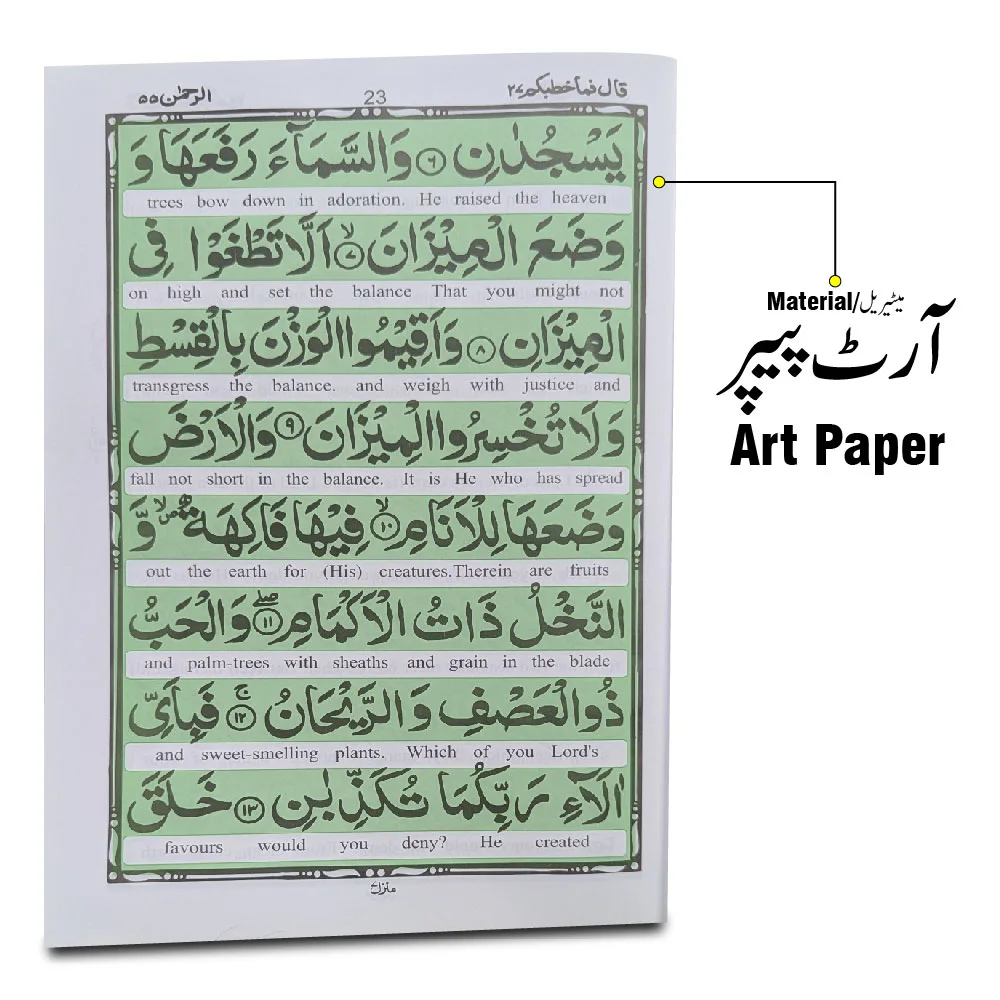 الرحمٰن ۵۵
23
قال فما خطبکم ۲۷
يَسْجُدٰنِ ۝۶ وَالسَّمَآءَ رَفَعَهَا وَ
trees bow down in adoration. He raised the heaven
وَضَعَ الْمِيْزَانَ ۝۷ۙ اَلَّا تَطْغَوْا فِى
on high and set the balance That you might not
الْمِيْزَانِ ۝۸ وَاَقِيْمُوا الْوَزْنَ بِالْقِسْطِ
transgress the balance. and weigh with justice and
وَلَا تُخْسِرُوا الْمِيْزَانَ ۝۹ وَالْاَرْضَ
fall not short in the balance. It is He who has spread
وَضَعَهَا لِلْاَنَامِ ۝۱۰ۙ فِيْهَا فَاكِهَةٌ وَّ
out the earth for (His) creatures.Therein are fruits
النَّخْلُ ذَاتُ الْاَكْمَامِ ۝۱۱ۖ وَالْحَبُّ
and palm-trees with sheaths and grain in the blade
ذُو الْعَصْفِ وَالرَّيْحَانُ ۝۱۲ۚ فَبِاَىِّ
and sweet-smelling plants. Which of you Lord's
اٰلَآءِ رَبِّكُمَا تُكَذِّبٰنِ ۝۱۳ خَلَقَ
favours would you deny? He created
Material/میٹیریل
آرٹ پیپر
Art Paper